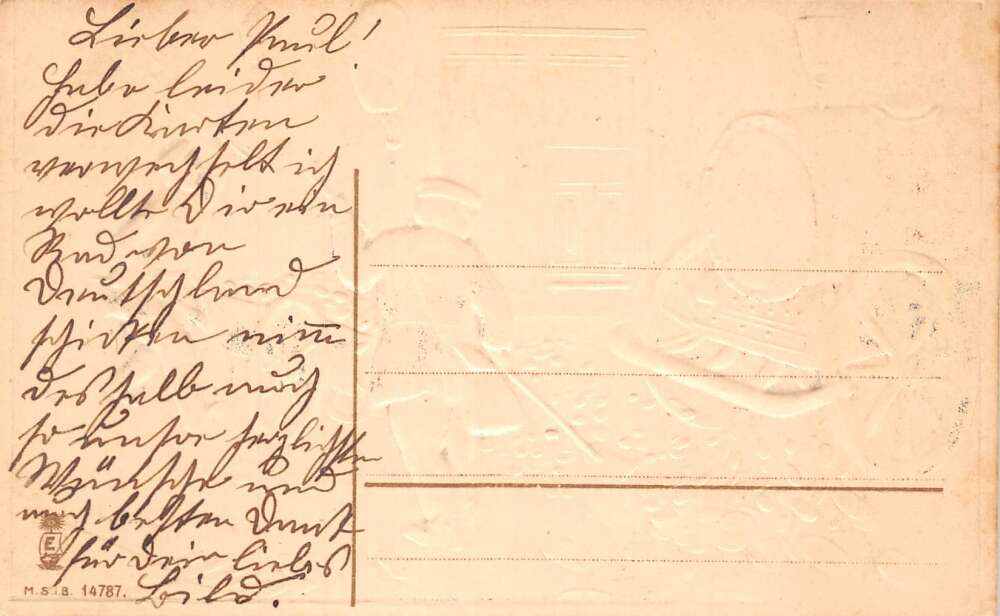 Lieber Paul!
Habe leider
die Karten
verwechselt ich
wollte Dir ein
Rad von
Deutschland
schicken nimm
deshalb auch
so unsre herzlichsten
Wünsche und
noch besten Dank
für Dein liebes
Bild.
E
M.S.i.B. 14787.